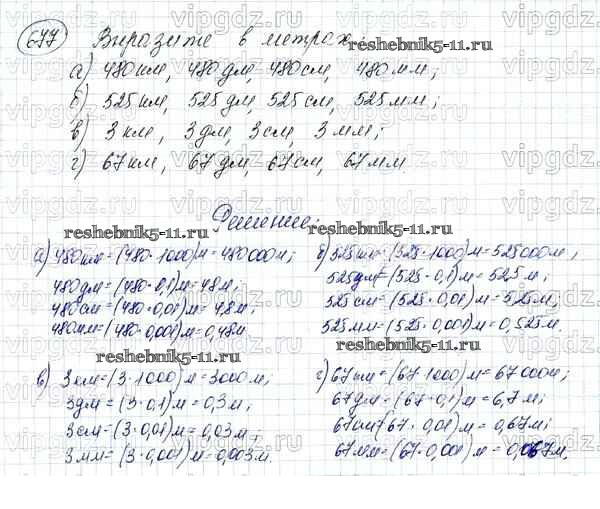 677 Выразите в метрах reshebnik5-11.ru
а) 480 км, 480 дм, 480 см, 480 мм;
б) 525 км, 525 дм, 525 см, 525 мм;
в) 3 км, 3 дм, 3 см, 3 мм;
г) 67 км, 67 дм, 67 см, 67 мм.
Решение:
reshebnik5-11.ru reshebnik5-11.ru
а) 480 км = (480·1000) м = 480000 м;
480 дм = (480·0,1) м = 48 м;
480 см = (480·0,01) м = 4,8 м;
480 мм = (480·0,001) м = 0,48 м.
б) 525 км = (525·1000) м = 525000 м;
525 дм = (525·0,1) м = 52,5 м;
525 см = (525·0,01) м = 5,25 м,
525 мм = (525·0,001) м = 0,525 м.
reshebnik5-11.ru reshebnik5-11.ru
в) 3 км = (3·1000) м = 3000 м;
3 дм = (3·0,1) м = 0,3 м;
3 см = (3·0,01) м = 0,03 м;
3 мм = (3·0,001) м = 0,003 м.
г) 67 км = (67·1000) м = 67000 м;
67 дм = (67·0,1) м = 6,7 м;
67 см = (67·0,01) м = 0,67 м;
67 мм = (67·0,001) м = 0,067 м.
vipgdz.ru